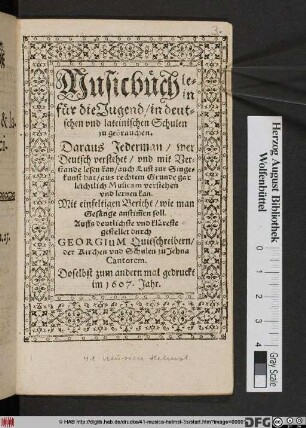 3.
Musicbüchle-
in
für die Jugend / in deut-
schen vnd lateinischen Schulen
zu gebrauchen.
Daraus Jederman / wer
Deutsch verstehet / vnd mit Ver-
stande lesen kan / auch Lust zur Singe-
kunst hat / aus rechtem Grunde gar
leichtlich Musicam verstehen
vnd lernen kan.
Mit einfeltigem Bericht / wie man
Gesänge anstimmen soll.
Auffs deutlichste vnd kläreste
gestellet durch
GEORGIUM Quitschreibern /
der Kirchen vnd Schulen zu Jehna
Cantorem.
Doselbst zum andern mal gedruckt
im 1607. Jahr.
Herzog August Bibliothek
Wolfenbüttel
Gray Scale
© HAB http://diglib.hab.de/drucke/41-musica-helmst-3s/start.htm?image=00005
DFG